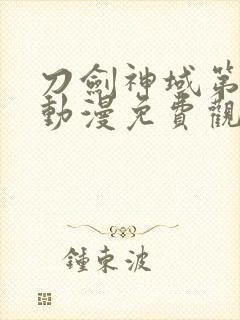 刀劍神域第
動漫免費觀
鍾東波